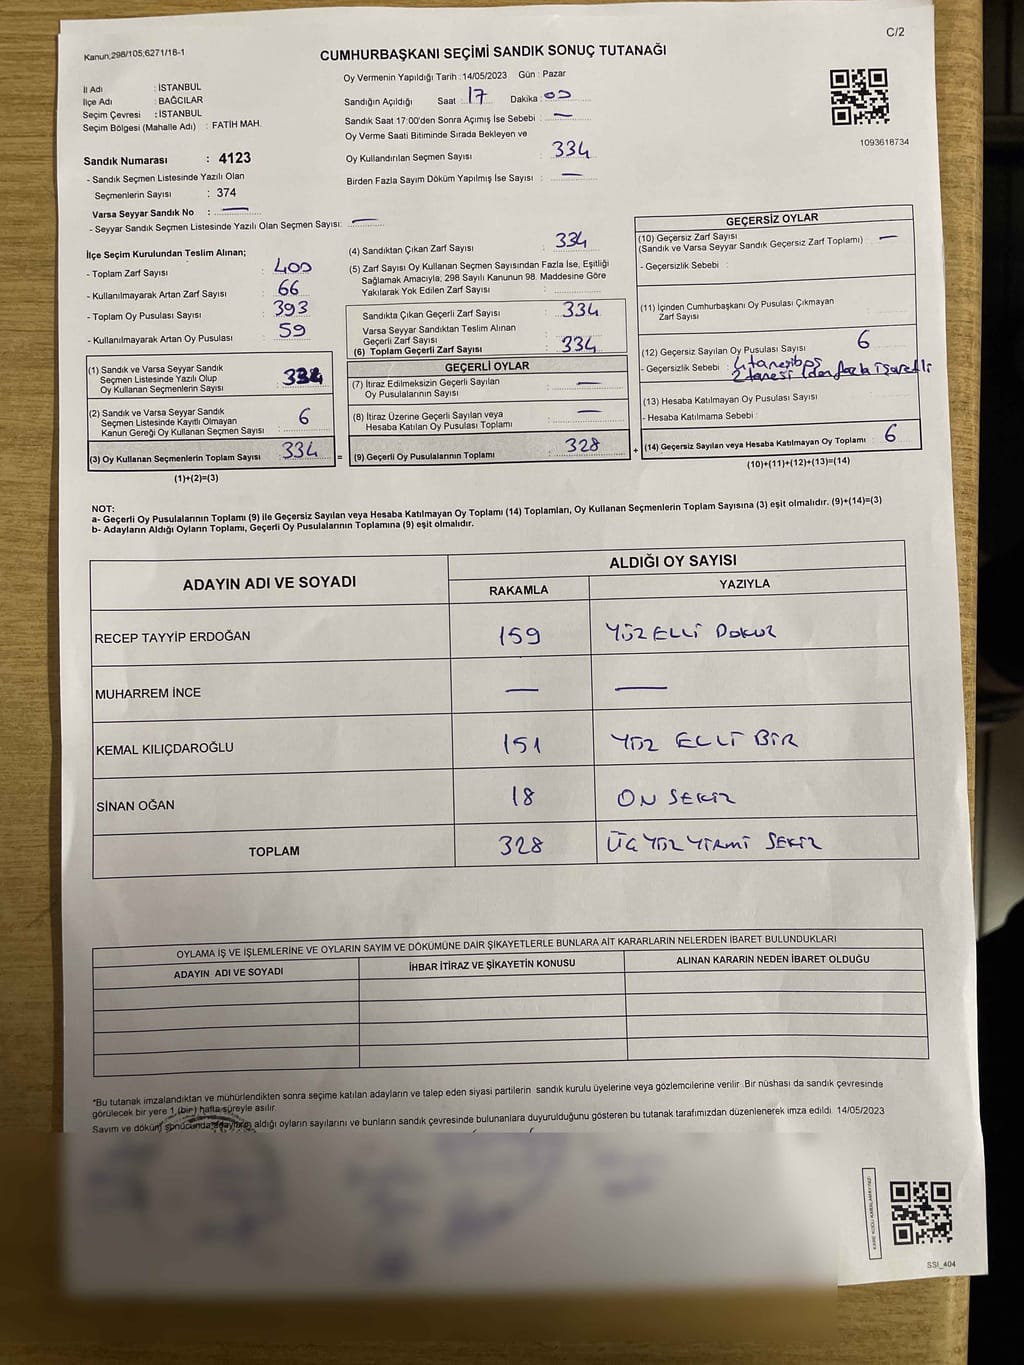 C/2
Kanun:298/105;6271/18-1
CUMHURBAŞKANI SEÇİMİ SANDIK SONUÇ TUTANAĞI
İl Adı : İSTANBUL
İlçe Adı : BAĞCILAR
Seçim Çevresi : İSTANBUL
Seçim Bölgesi (Mahalle Adı) : FATİH MAH.
Sandık Numarası : 4123
- Sandık Seçmen Listesinde Yazılı Olan
Seçmenlerin Sayısı : 374
Varsa Seyyar Sandık No : —
- Seyyar Sandık Seçmen Listesinde Yazılı Olan Seçmen Sayısı: —
Oy Vermenin Yapıldığı Tarih :14/05/2023 Gün : Pazar
Sandığın Açıldığı Saat : 17 Dakika : 00
Sandık Saat 17:00'den Sonra Açımış İse Sebebi : —
Oy Verme Saati Bitiminde Sırada Bekleyen ve
Oy Kullandırılan Seçmen Sayısı : 334
Birden Fazla Sayım Döküm Yapılmış İse Sayısı : —
1093618734
İlçe Seçim Kurulundan Teslim Alınan;
- Toplam Zarf Sayısı : 400
- Kullanılmayarak Artan Zarf Sayısı : 66
- Toplam Oy Pusulası Sayısı : 393
- Kullanılmayarak Artan Oy Pusulası : 59
(1) Sandık ve Varsa Seyyar Sandık
Seçmen Listesinde Yazılı Olup
Oy Kullanan Seçmenlerin Sayısı :
(2) Sandık ve Varsa Seyyar Sandık
Seçmen Listesinde Kayıtlı Olmayan
Kanun Gereği Oy Kullanan Seçmen Sayısı : 6
(3) Oy Kullanan Seçmenlerin Toplam Sayısı : 334
(1)+(2)=(3)
(4) Sandıktan Çıkan Zarf Sayısı : 334
(5) Zarf Sayısı Oy Kullanan Seçmen Sayısından Fazla İse, Eşitliği
Sağlamak Amacıyla, 298 Sayılı Kanunun 98. Maddesine Göre
Yakılarak Yok Edilen Zarf Sayısı :
Sandıkta Çıkan Geçerli Zarf Sayısı : 334
Varsa Seyyar Sandıktan Teslim Alınan
Geçerli Zarf Sayısı :
(6) Toplam Geçerli Zarf Sayısı : 334
GEÇERLİ OYLAR
(7) İtiraz Edilmeksizin Geçerli Sayılan
Oy Pusulasının Sayısı : —
(8) İtiraz Üzerine Geçerli Sayılan veya
Hesaba Katılan Oy Pusulası Toplamı : —
= (9) Geçerli Oy Pusulalarının Toplamı : 328 +
GEÇERSİZ OYLAR
(10) Geçersiz Zarf Sayısı : —
(Sandık ve Varsa Seyyar Sandık Geçersiz Zarf Toplamı)
- Geçersizlik Sebebi :
(11) İçinden Cumhurbaşkanı Oy Pusulası Çıkmayan
Zarf Sayısı :
(12) Geçersiz Sayılan Oy Pusulası Sayısı : 6
- Geçersizlik Sebebi : 4 tanesi boş
2 tanesi 1den fazla işaretli
(13) Hesaba Katılmayan Oy Pusulası Sayısı :
- Hesaba Katılmama Sebebi :
(14) Geçersiz Sayılan veya Hesaba Katılmayan Oy Toplamı : 6
(10)+(11)+(12)+(13)=(14)
NOT:
a- Geçerli Oy Pusulalarının Toplamı (9) ile Geçersiz Sayılan veya Hesaba Katılmayan Oy Toplamı (14) Toplamları, Oy Kullanan Seçmenlerin Toplam Sayısına (3) eşit olmalıdır. (9)+(14)=(3)
b- Adayların Aldığı Oyların Toplamı, Geçerli Oy Pusulalarının Toplamına (9) eşit olmalıdır.
ADAYIN ADI VE SOYADI ALDIĞI OY SAYISI
RAKAMLA YAZIYLA
RECEP TAYYİP ERDOĞAN 159 YÜZ ELLİ DOKUZ
MUHARREM İNCE — —
KEMAL KILIÇDAROĞLU 151 YÜZ ELLİ BİR
SİNAN OĞAN 18 ON SEKİZ
TOPLAM 328 ÜÇ YÜZ YİRMİ SEKİZ
OYLAMA İŞ VE İŞLEMLERİNE VE OYLARIN SAYIM VE DÖKÜMÜNE DAİR ŞİKAYETLERLE BUNLARA AİT KARARLARIN NELERDEN İBARET BULUNDUKLARI
ADAYIN ADI VE SOYADI İHBAR İTİRAZ VE ŞİKAYETİN KONUSU ALINAN KARARIN NEDEN İBARET OLDUĞU
*Bu tutanak imzalandıktan ve mühürlendikten sonra seçime katılan adayların ve talep eden siyasi partilerin sandık kurulu üyelerine veya gözlemcilerine verilir .Bir nüshası da sandık çevresinde
görülecek bir yere 1 (bir) hafta süreyle asılır.
Sayım ve döküm sonucunda adayların aldığı oyların sayılarını ve bunların sandık çevresinde bulunanlara duyurulduğunu gösteren bu tutanak tarafımızdan düzenlenerek imza edildi. 14/05/2023
SSI_404